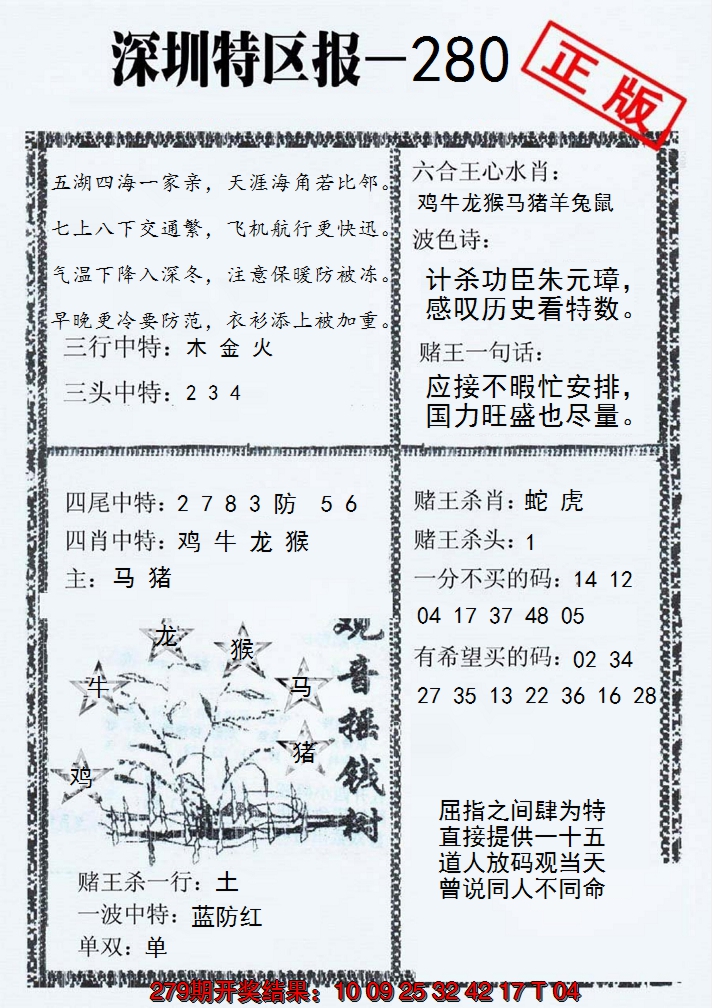 深圳特区报－280
正版
五湖四海一家亲，天涯海角若比邻。
七上八下交通繁，飞机航行更快迅。
气温下降入深冬，注意保暖防被冻。
早晚更冷要防范，衣衫添上被加重。
三行中特：木 金 火
三头中特：2 3 4
六合王心水肖：
鸡牛龙猴马猪羊兔鼠
波色诗：
计杀功臣朱元璋，
感叹历史看特数。
赌王一句话：
应接不暇忙安排，
国力旺盛也尽量。
四尾中特：2 7 8 3 防 5 6
四肖中特：鸡 牛 龙 猴
主：马 猪
龙
猴
牛
马
猪
鸡
观音摇钱树
赌王杀一行：土
一波中特：蓝防红
单双：单
赌王杀肖：蛇 虎
赌王杀头：1
一分不买的码：14 12
04 17 37 48 05
有希望买的码：02 34
27 35 13 22 36 16 28
屈指之间肆为特
直接提供一十五
道人放码观当天
曾说同人不同命
279期开奖结果：10 09 25 32 42 17 T 04